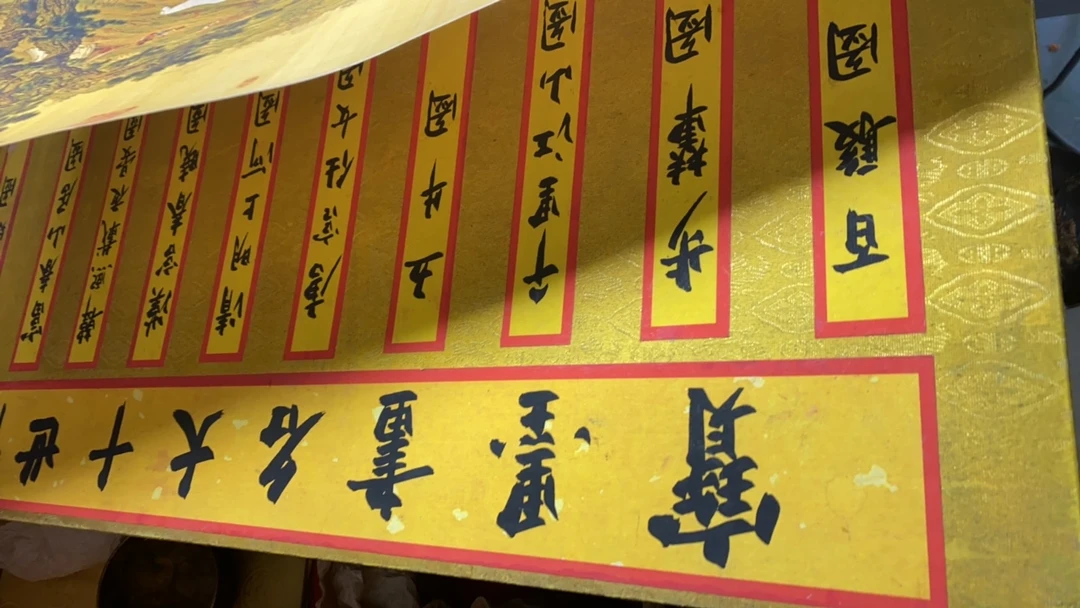 世十大名畫墨寶
富春山居圖
韓熙載夜宴圖
漢宮春曉圖
清明上河圖
唐宮仕女圖
五牛圖
千里江山圖
步輦圖
百駿圖